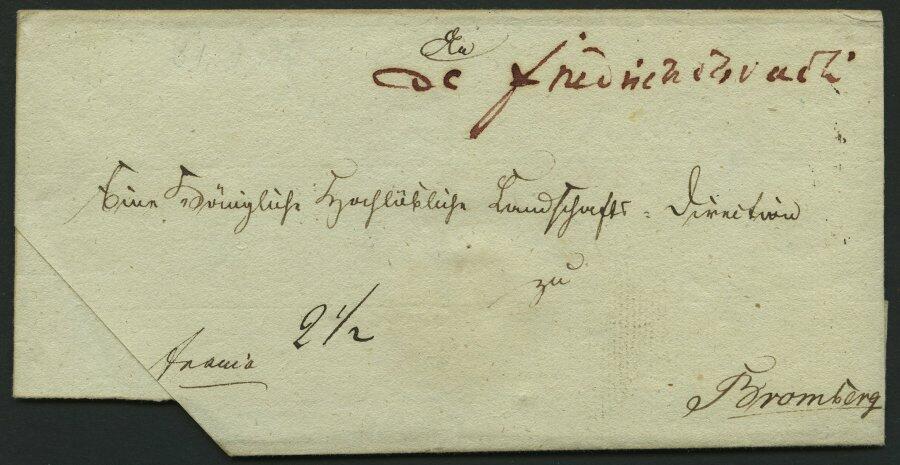 An
de friedrichsbruch
Eine Königliche Hochlöbliche Landschafts- Direction
zu
franco 2 1/2
Bromberg